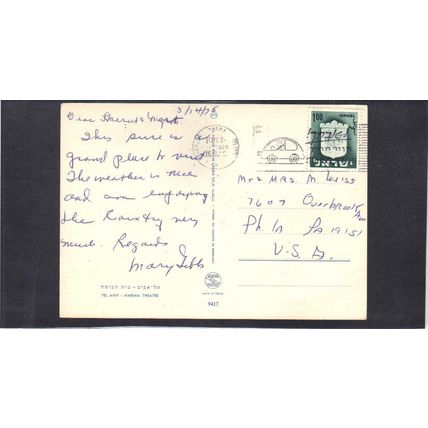 3/14/76
Dear Harriet & Mort.
This sure is
grand place to visit
The weather is nice
and am enjoying
the Country very
much. Regards
Mary Gibb
תל-אביב - בית הבימה
TEL AVIV - HABIMA THEATRE
9417
1.00 ISRAEL
ישראל
Mr & MRS. M. Weiss
7607 Overbrook Ave
Phila Pa 19151
U.S.A.